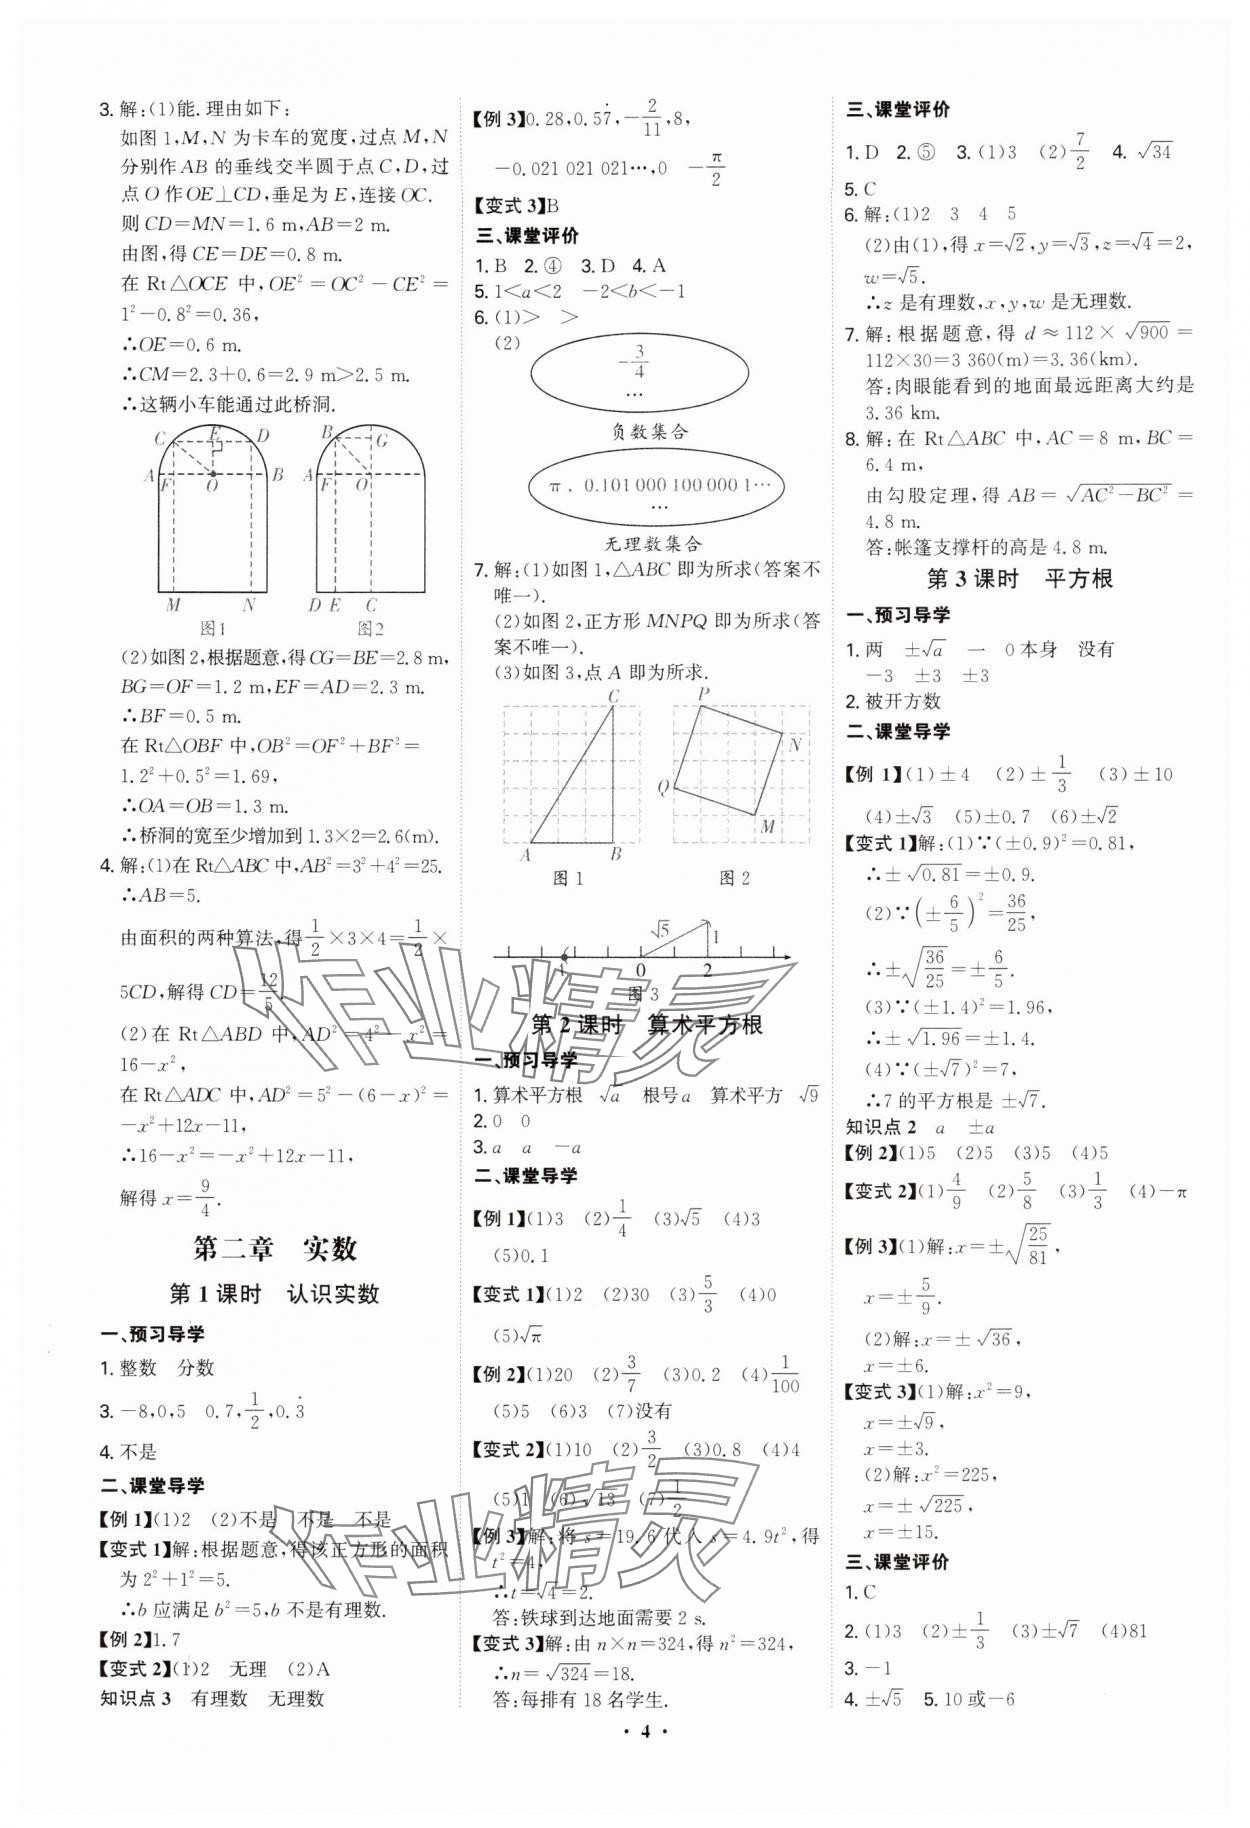 3. 解:(1)能. 理由如下:
如图 1,M,N 为卡车的宽度,过点 M,N
分别作 AB 的垂线交半圆于点 C,D,过
点 O 作 OE⊥CD,垂足为 E,连接 OC.
则 CD=MN=1.6 m,AB=2 m.
由图,得 CE=DE=0.8 m.
在 Rt△OCE 中,OE²=OC²-CE²=
1²-0.8²=0.36,
∴OE=0.6 m.
∴CM=2.3+0.6=2.9 m>2.5 m.
∴这辆小车能通过此桥洞.
C E D
A F O B
M N
图1
B G
A F O
D E C
图2
(2)如图 2,根据题意,得 CG=BE=2.8 m,
BG=OF=1.2 m,EF=AD=2.3 m.
∴BF=0.5 m.
在 Rt△OBF 中,OB²=OF²+BF²=
1.2²+0.5²=1.69,
∴OA=OB=1.3 m.
∴桥洞的宽至少增加到 1.3×2=2.6(m).
4. 解:(1)在 Rt△ABC 中,AB²=3²+4²=25.
∴AB=5.
由面积的两种算法,得 1/2×3×4=1/2×
5CD,解得 CD=12/5.
(2)在 Rt△ABD 中,AD²=4²-x²=
16-x²,
在 Rt△ADC 中,AD²=5²-(6-x)²=
-x²+12x-11,
∴16-x²=-x²+12x-11,
解得 x=9/4.
第二章 实数
第 1 课时 认识实数
一、预习导学
1. 整数 分数
3. -8,0,5 0.7,1/2,0.3̇
4. 不是
二、课堂导学
【例 1】(1)2 (2)不是 不是 不是
【变式 1】解:根据题意,得该正方形的面积
为 2²+1²=5.
∴b 应满足 b²=5,b 不是有理数.
【例 2】1.7
【变式 2】(1)2 无理 (2)A
知识点 3 有理数 无理数
【例 3】0.28,0.57̇,-2/11,8,
-0.021 021 021…,0 -π/2
【变式 3】B
三、课堂评价
1. B 2. ④ 3. D 4. A
5. 1<a<2 -2<b<-1
6. (1)> >
(2)
-3/4
…
负数集合
π, 0.101 000 100 000 1…
…
无理数集合
7. 解:(1)如图 1,△ABC 即为所求(答案不
唯一).
(2)如图 2,正方形 MNPQ 即为所求(答
案不唯一).
(3)如图 3,点 A 即为所求.
C
A B
图 1
P
N
Q
M
图 2
√5 1
A 0 2
图 3
第 2 课时 算术平方根
一、预习导学
1. 算术平方根 √a 根号 a 算术平方 √9
2. 0 0
3. a a -a
二、课堂导学
【例 1】(1)3 (2)1/4 (3)√5 (4)3
(5)0.1
【变式 1】(1)2 (2)30 (3)5/3 (4)0
(5)√π
【例 2】(1)20 (2)3/7 (3)0.2 (4)1/100
(5)5 (6)3 (7)没有
【变式 2】(1)10 (2)3/2 (3)0.8 (4)4
(5)1 (6)√13 (7)1/2
【例 3】解:将 s=19.6 代入 s=4.9t²,得
t²=4,
∴t=√4=2.
答:铁球到达地面需要 2 s.
【变式 3】解:由 n×n=324,得 n²=324,
∴n=√324=18.
答:每排有 18 名学生.
三、课堂评价
1. D 2. ⑤ 3. (1)3 (2)7/2 4. √34
5. C
6. 解:(1)2 3 4 5
(2)由(1),得 x=√2,y=√3,z=√4=2,
w=√5.
∴z 是有理数,x,y,w 是无理数.
7. 解:根据题意,得 d≈112×√900=
112×30=3 360(m)=3.36(km).
答:肉眼能看到的地面最远距离大约是
3.36 km.
8. 解:在 Rt△ABC 中,AC=8 m,BC=
6.4 m,
由勾股定理,得 AB=√(AC²-BC²)=
4.8 m.
答:帐篷支撑杆的高是 4.8 m.
第 3 课时 平方根
一、预习导学
1. 两 ±√a 一 0 本身 没有
-3 ±3 ±3
2. 被开方数
二、课堂导学
【例 1】(1)±4 (2)±1/3 (3)±10
(4)±√3 (5)±0.7 (6)±√2
【变式 1】解:(1)∵(±0.9)²=0.81,
∴±√0.81=±0.9.
(2)∵(±6/5)²=36/25,
∴±√(36/25)=±6/5.
(3)∵(±1.4)²=1.96,
∴±√1.96=±1.4.
(4)∵(±√7)²=7,
∴7 的平方根是 ±√7.
知识点 2 a ±a
【例 2】(1)5 (2)5 (3)5 (4)5
【变式 2】(1)4/9 (2)5/8 (3)1/3 (4)-π
【例 3】(1)解:x=±√(25/81),
x=±5/9.
(2)解:x=±√36,
x=±6.
【变式 3】(1)解:x²=9,
x=±√9,
x=±3.
(2)解:x²=225,
x=±√225,
x=±15.
三、课堂评价
1. C
2. (1)3 (2)±1/3 (3)±√7 (4)81
3. -1
4. ±√5 5. 10 或-6
· 4 ·
作业精灵
作业精灵